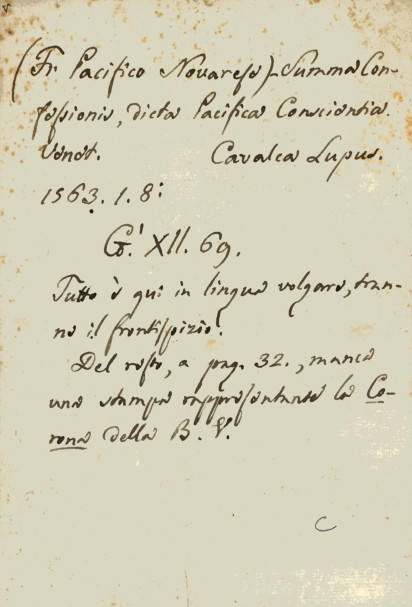 (Fr. Pacifico Novarese) - Summa Con-
fessionis, dicta Pacifica Conscientia.
Venet. Cavalca Lupus.
1563. 1. 8:
XII. 69.
Tutto è qui in lingua volgare, tran-
ne il frontispizio.
Del resto, a pag. 32., manca
una stampa rappresentante la Co-
rona della B. V.
C